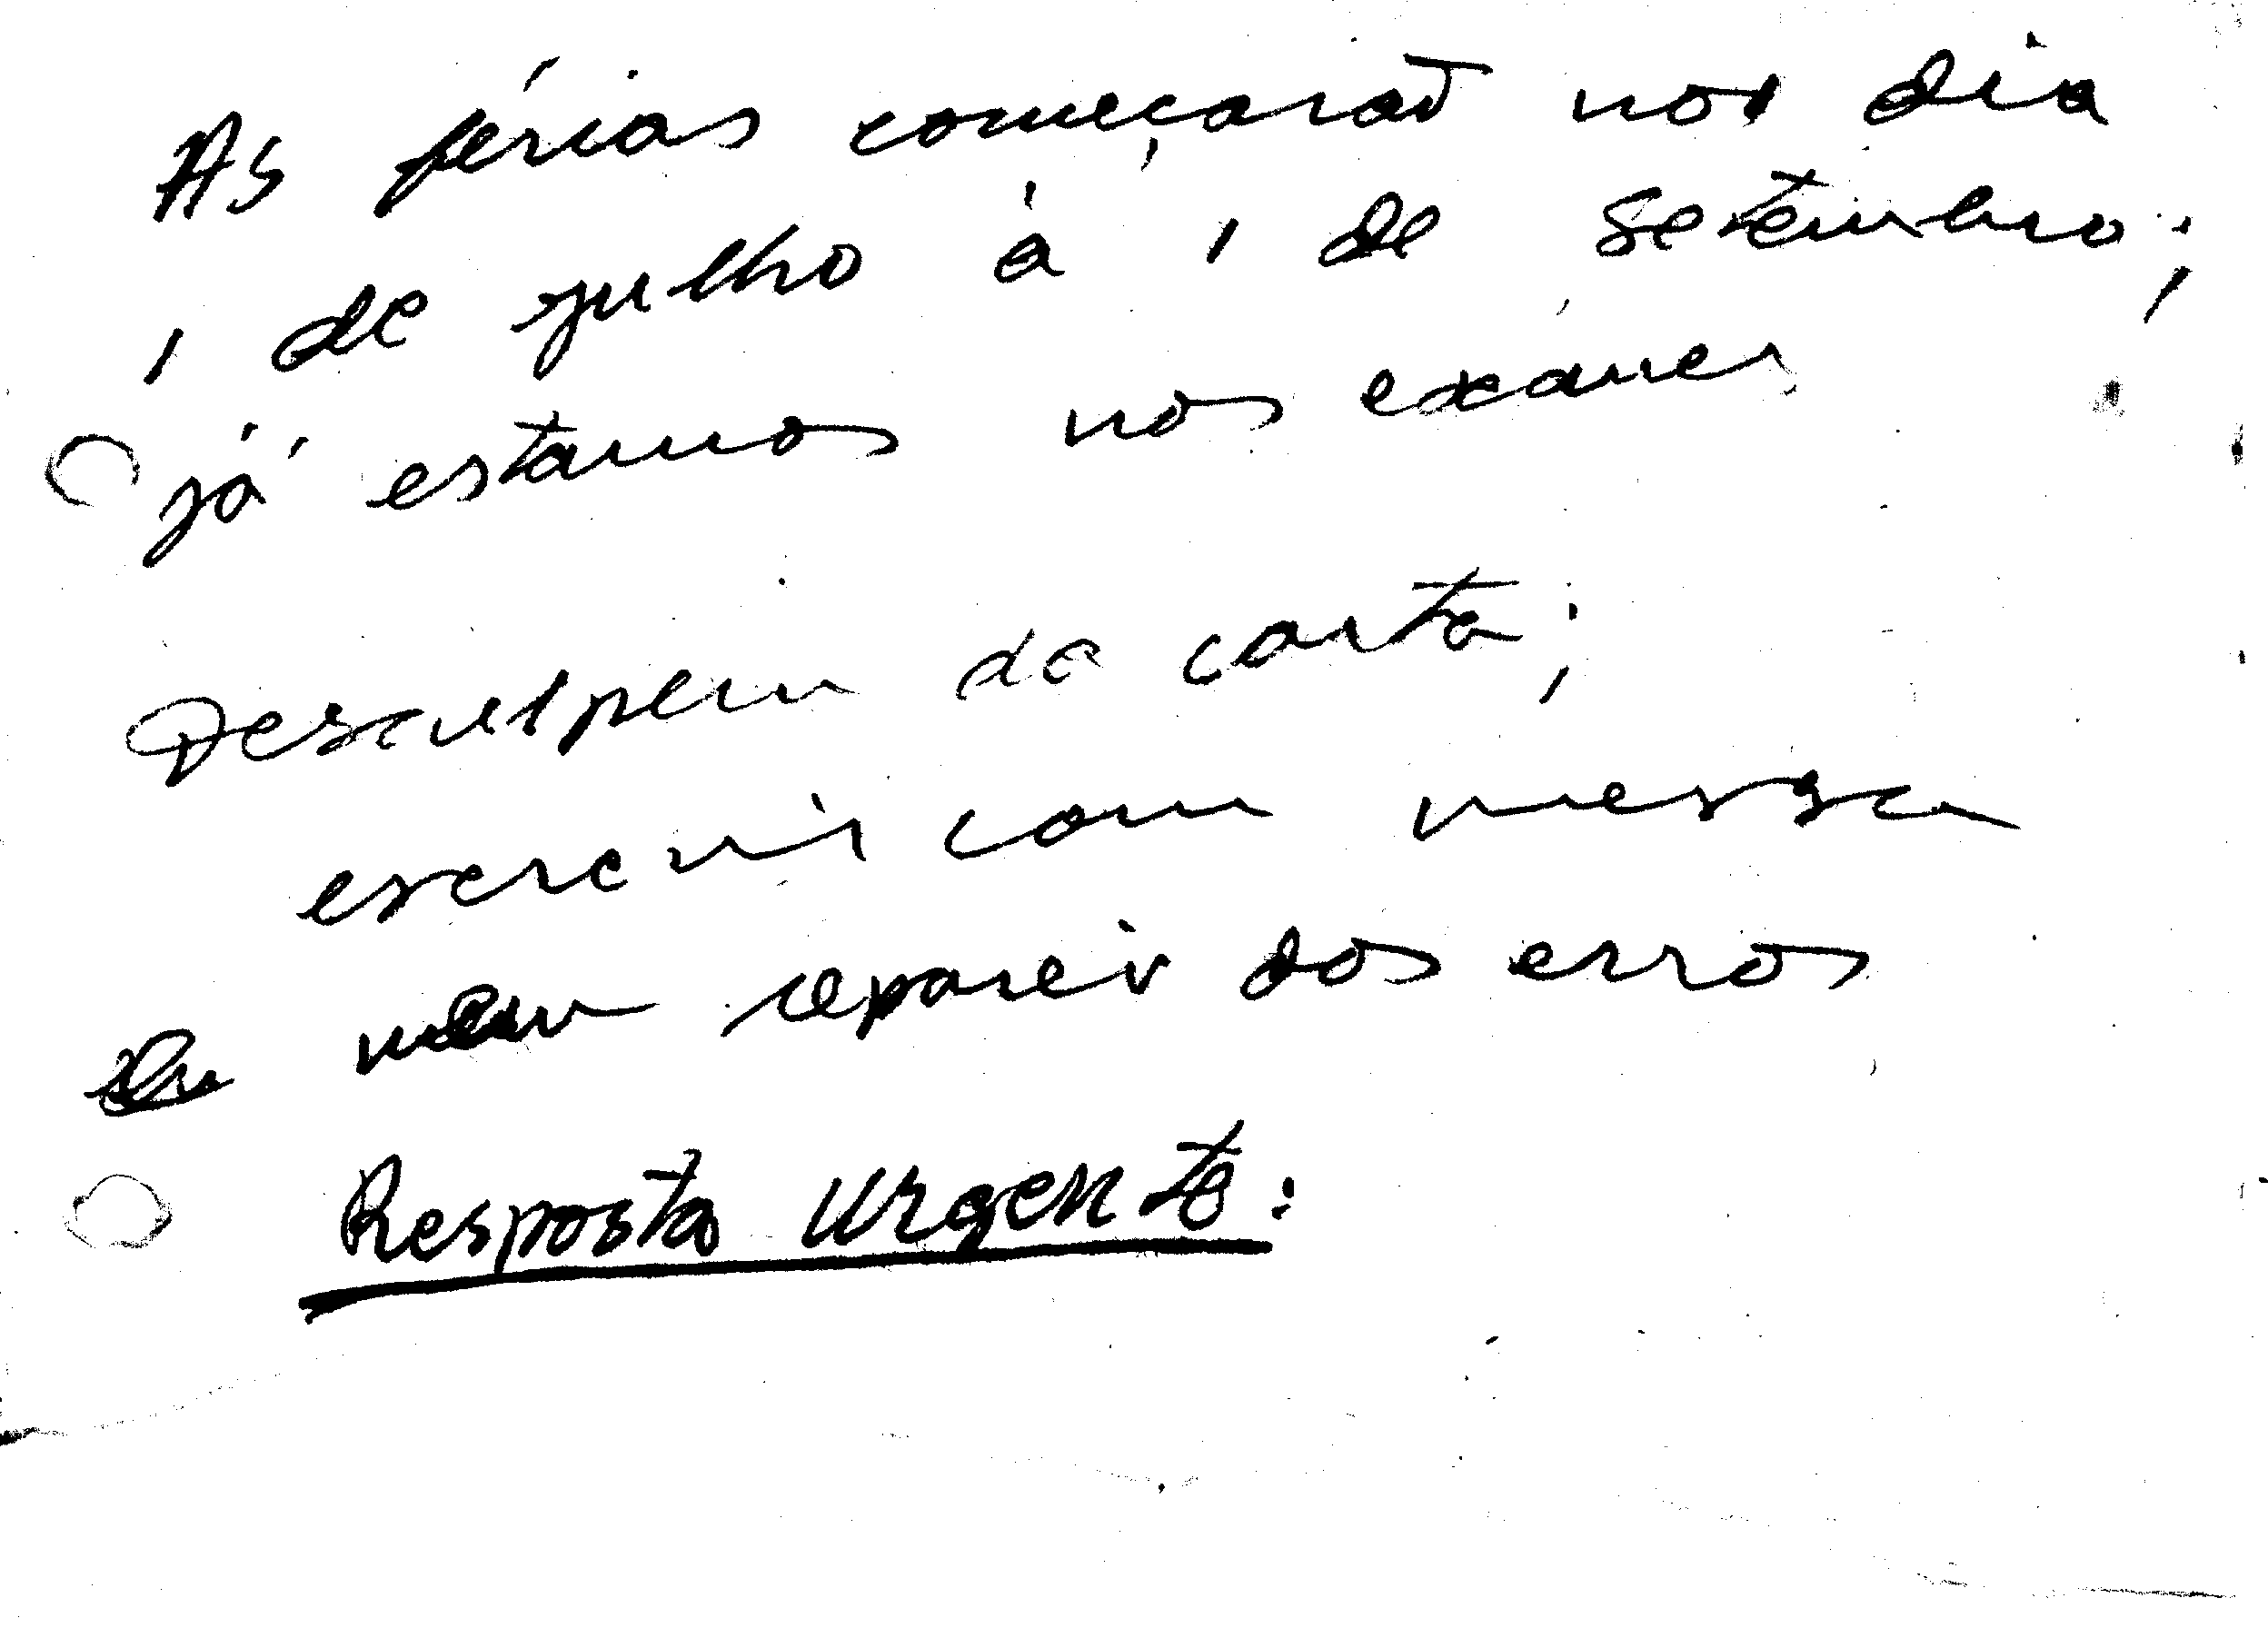 As férias começarão nos dia
1 de julho à 1 de setembro;
já estamos nos exames
Desculpem da carta;
escrevi com pressa
nem reparei dos erros
Resposta Urgente: